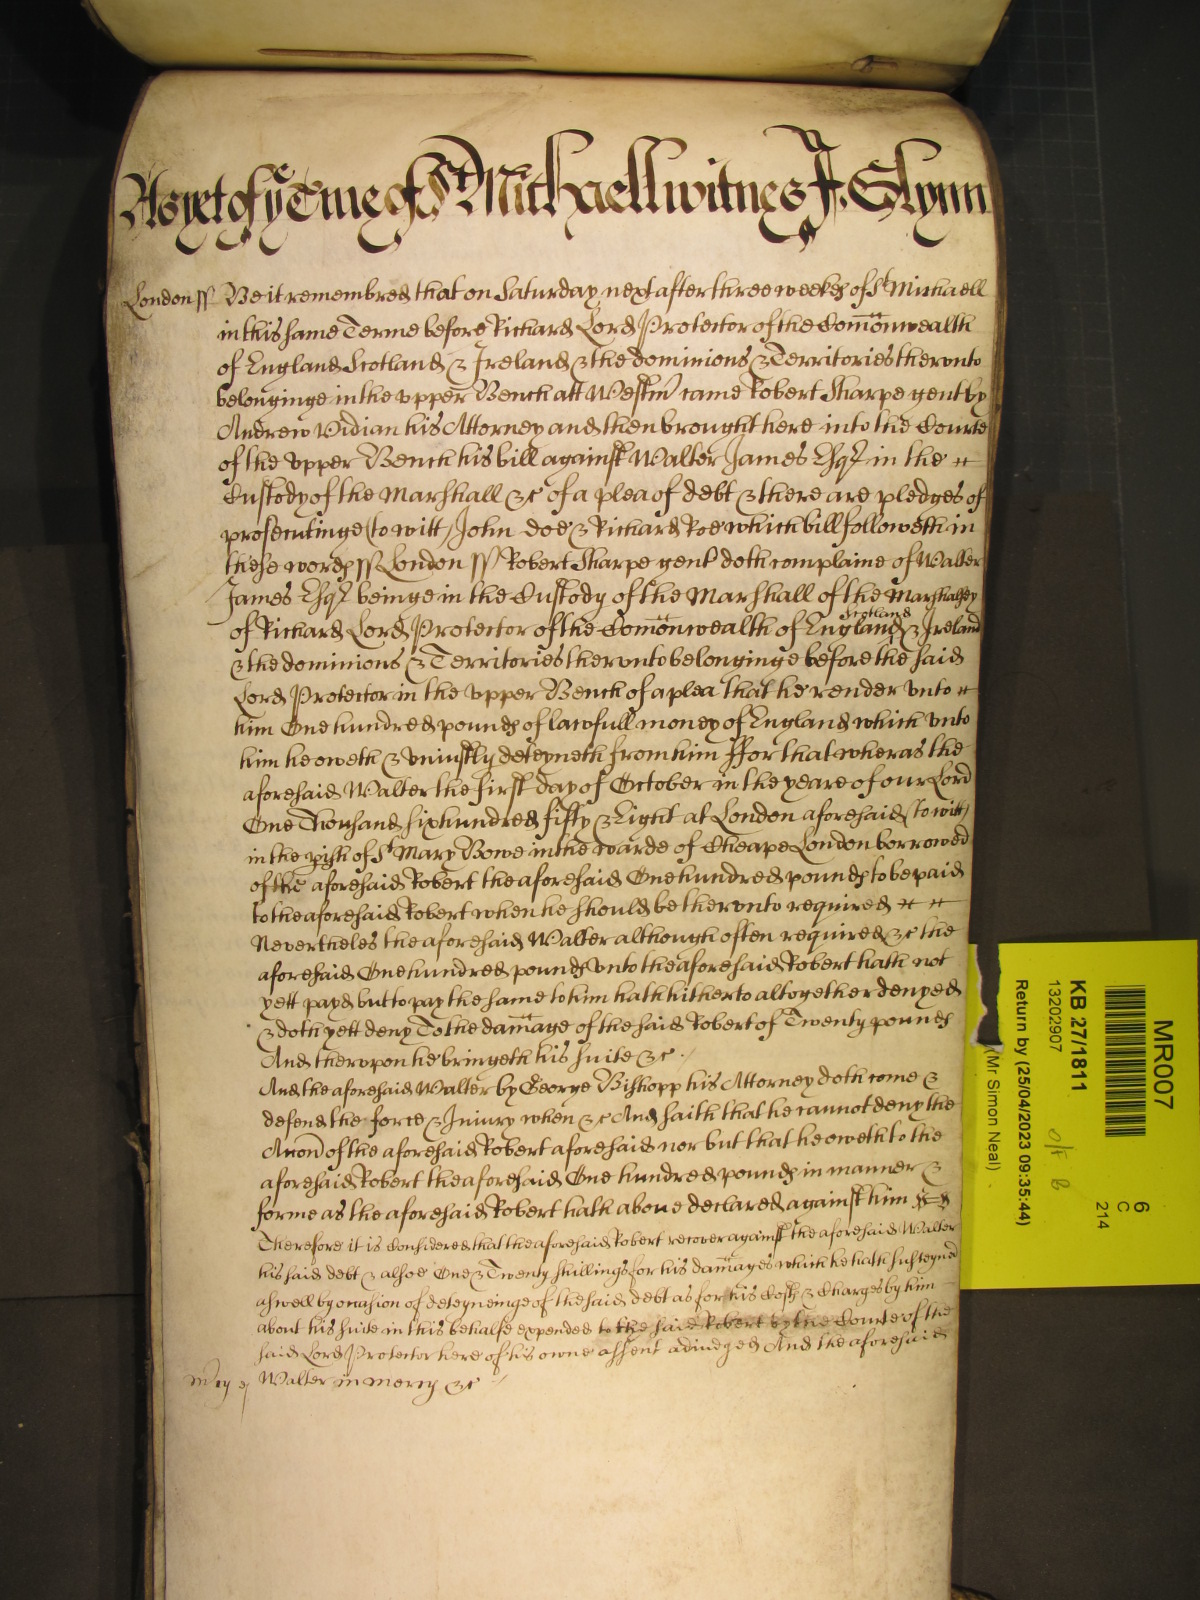 As yet of ye Tme of St Michaell witnes J. Glynn
London ss Be it remembred that on Saturday next after three weekes of St Michaell
in this same Terme before Richard Lord Protector of the Comonwealth
of England Scotland & Ireland & the dominions & Territories thervnto
belonginge in the vpper Bench att Westmr came Robert Sharpe gent by
Andrew Vidian his Attorney and then brought here into the Courte
of the vpper Bench his bill against Walter James Esqr in the
Custody of the Marshall &c of a plea of debt & there are pledges of
prosecutinge (to witt) John Doe & Richard Roe which bill followeth in
these words ss London ss Robert Sharpe gent doth complaine of Walter
James Esqr beinge in the Custody of the Marshall of the Marshalsey
of Richard Lord Protector of the Comonwealth of England Scotland & Ireland
& the dominions & Territories thervnto belonginge before the said
Lord Protector in the vpper Bench of a plea that he render vnto
him One hundred pounds of lawfull money of England which vnto
him he oweth & vniustly deteyneth from him ffor that wheras the
aforesaid Walter the first day of October in the yeare of our Lord
One Thousand six hundred fifty & Eight at London aforesaid (to witt)
in the pish of St Mary Bowe in the warde of Cheape London borrowed
of the aforesaid Robert the aforesaid One hundred pounds to be paid
to the aforesaid Robert when he should be thervnto required
Nevertheles the aforesaid Walter although often required &c the
aforesaid One hundred pounds vnto the aforesaid Robert hath not
yett payd but to pay the same to him hath hitherto altogether denyed
& doth yett deny To the damage of the said Robert of Twenty pounds
And thervpon he bringeth his suite &c
And the aforesaid Walter by George Bishopp his Attorney doth come &
defend the force & Iniury when &c And saith that he cannot deny the
Accon of the aforesaid Robert aforesaid nor but that he oweth to the
aforesaid Robert the aforesaid One hundred pounds in manner &
forme as the aforesaid Robert hath aboue declared against him
Therefore it is Considered that the aforesaid Robert recover against the aforesaid Walter
his said debt & alsoe One & Twenty shillings for his damages which he hath susteyned
aswell by occasion of deteyneinge of the said debt as for his Costs & Charges by him
about his suite in this behalfe expended to the said Robert by the Courte of the
said Lord Protector here of his owne assent adiudged And the aforesaid
Mcy Walter in mercy &c
MR007
KB 27/1811
13202907
Return by (25/04/2023 09:35:44)
(Mr Simon Neal)
6
C
214